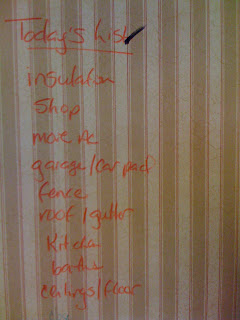 Today's List
insulation
Shop
move AC
garage/car pad
fence
roof/gutter
Kitchen
baths
ceilings/floor